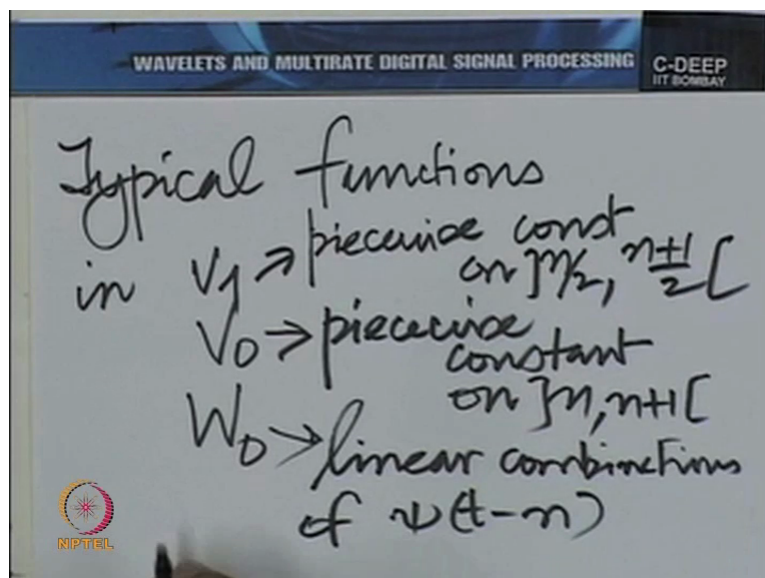 WAVELETS AND MULTIRATE DIGITAL SIGNAL PROCESSING
C-DEEP
IIT BOMBAY
Typical functions
in V1 → piecewise const
on ]n/2, n+1/2[
V0 → piecewise
constant
on ]n, n+1[
W0 → linear combinations
of ψ(t-n)
NPTEL